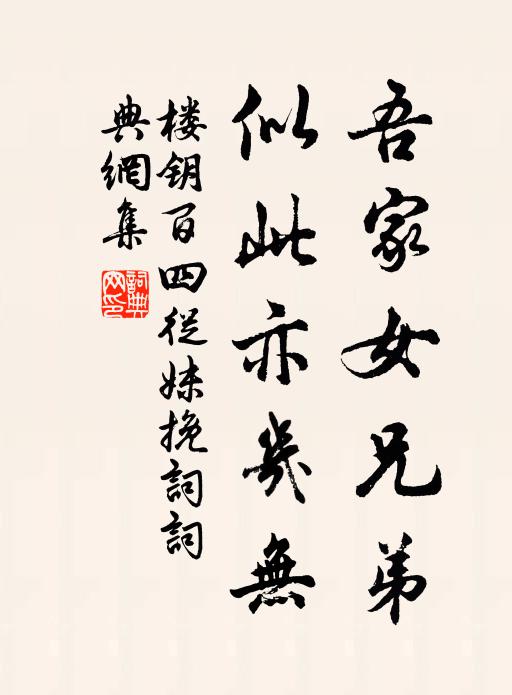 吾家女兄弟
似此亦幾無
楼钥百四從妹挽詞詞
典網集
詞典网印